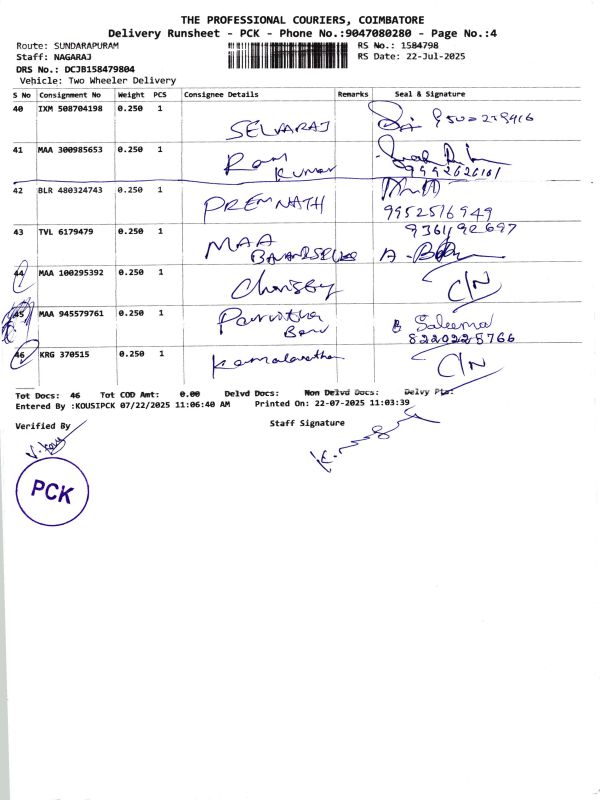 THE PROFESSIONAL COURIERS, COIMBATORE
Delivery Runsheet - PCK - Phone No.:9047080280 - Page No.:4
Route: SUNDARAPURAM RS No.: 1584798
Staff: NAGARAJ RS Date: 22-Jul-2025
DRS No.: DCJB158479804
Vehicle: Two Wheeler Delivery
S No Consignment No Weight PCS Consignee Details Remarks Seal & Signature
40 IXM 508704198 0.250 1
SELVARAJ
41 MAA 300985653 0.250 1
Ram
Kumar
42 BLR 480324743 0.250 1
PREMNATH 9952516949
43 TVL 6179479 0.250 1 9361192697
MAA
44 MAA 100295392 0.250 1
C/N
45 MAA 945579761 0.250 1
Banu Saleema
8220228766
46 KRG 370515 0.250 1
C/N
Tot Docs: 46 Tot COD Amt: 0.00 Delvd Docs: Non Delvd Docs: Delvy Pts:
Entered By :KOUSIPCK 07/22/2025 11:06:40 AM Printed On: 22-07-2025 11:03:39
Verified By Staff Signature
PCK